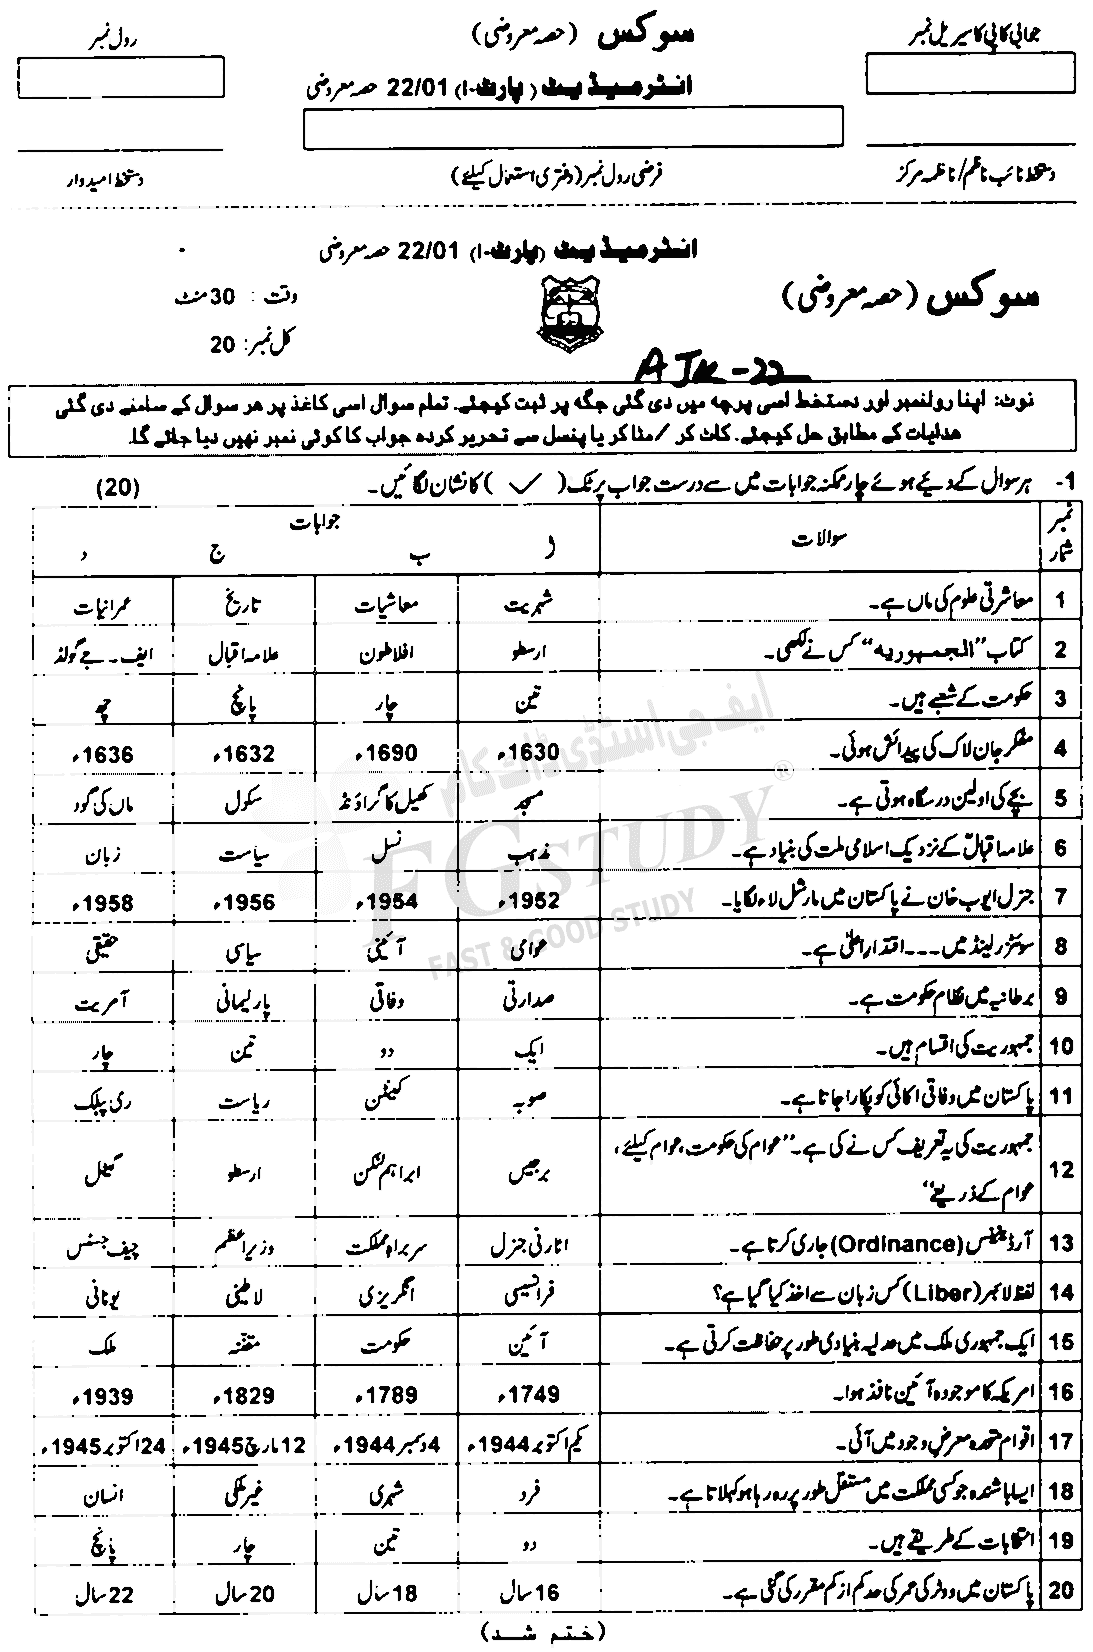 جوابی کاپی کا سیریل نمبر
سوکس (حصہ معروضی)
رول نمبر
انٹرمیڈیٹ (پارٹ-I) 22/01 حصہ معروضی
دستخط نائب ناظم/ناظمہ مرکز
فرضی رول نمبر (دفتری استعمال کیلئے)
دستخط امیدوار
انٹرمیڈیٹ (پارٹ-I) 22/01 حصہ معروضی
سوکس (حصہ معروضی)
وقت : 30 منٹ
کل نمبر: 20
AJK-22
نوٹ: اپنا رولنمبر اور دستخط اسی پرچہ میں دی گئی جگہ پر ثبت کیجئے۔ تمام سوال اسی کاغذ پر ھر سوال کے سامنے دی گئی
ھدایات کے مطابق حل کیجئے۔ کاٹ کر /مٹا کر یا پنسل سے تحریر کردہ جواب کا کوئی نمبر نھیں دیا جائے گا۔
1- ہر سوال کے دیئے ہوئے چار ممکنہ جوابات میں سے درست جواب پر ٹک (✓) کا نشان لگائیں۔ (20)
نمبر شمار سوالات جوابات
ا ب ج د
1 معاشرتی علوم کی ماں ہے۔ شہریت معاشیات تاریخ عمرانیات
2 کتاب "الجمہوریہ" کس نے لکھی۔ ارسطو افلاطون علامہ اقبال ایف۔ جے گولڈ
3 حکومت کے شعبے ہیں۔ تین چار پانچ چھ
4 مفکر جان لاک کی پیدائش ہوئی۔ 1630ء 1690ء 1632ء 1636ء
5 بچے کی اولین درسگاہ ہوتی ہے۔ مسجد کھیل کا گراؤنڈ سکول ماں کی گود
6 علامہ اقبالؒ کے نزدیک اسلامی ملت کی بنیاد ہے۔ مذہب نسل سیاست زبان
7 جنرل ایوب خان نے پاکستان میں مارشل لاء لگایا۔ 1952ء 1954ء 1956ء 1958ء
8 سوئٹزرلینڈ میں ۔۔۔ اقتدار اعلیٰ ہے۔ عوامی آئینی سیاسی حقیقی
9 برطانیہ میں نظام حکومت ہے۔ صدارتی وفاقی پارلیمانی آمریت
10 جمہوریت کی اقسام ہیں۔ ایک دو تین چار
11 پاکستان میں وفاقی اکائی کو پکارا جاتا ہے۔ صوبہ کینٹن ریاست ری پبلک
12 جمہوریت کی یہ تعریف کس نے کی ہے۔ "عوام کی حکومت، عوام کیلئے،
عوام کے ذریعے" برجیس ابراہم لنکن ارسطو گیٹل
13 آرڈیننس (Ordinance) جاری کرتا ہے۔ اٹارنی جنرل سربراہ مملکت وزیراعظم چیف جسٹس
14 لفظ لائبر (Liber) کس زبان سے اخذ کیا گیا ہے؟ فرانسیسی انگریزی لاطینی یونانی
15 ایک جمہوری ملک میں عدلیہ بنیادی طور پر حفاظت کرتی ہے۔ آئین حکومت مقننہ ملک
16 امریکہ کا موجودہ آئین نافذ ہوا۔ 1749ء 1789ء 1829ء 1939ء
17 اقوام متحدہ معرض وجود میں آئی۔ یکم اکتوبر 1944ء 4 دسمبر 1944ء 12 مارچ 1945ء 24 اکتوبر 1945ء
18 ایسا باشندہ جو کسی مملکت میں مستقل طور پر رہ رہا ہو کہلاتا ہے۔ فرد شہری غیر ملکی انسان
19 انتخابات کے طریقے ہیں۔ دو تین چار پانچ
20 پاکستان میں ووٹر کی عمر کی حد کم از کم مقرر کی گئی ہے۔ 16 سال 18 سال 20 سال 22 سال
(ختم شد)
ایف جی اسٹڈی ڈاٹ کام
FG STUDY ®
FAST & GOOD STUDY